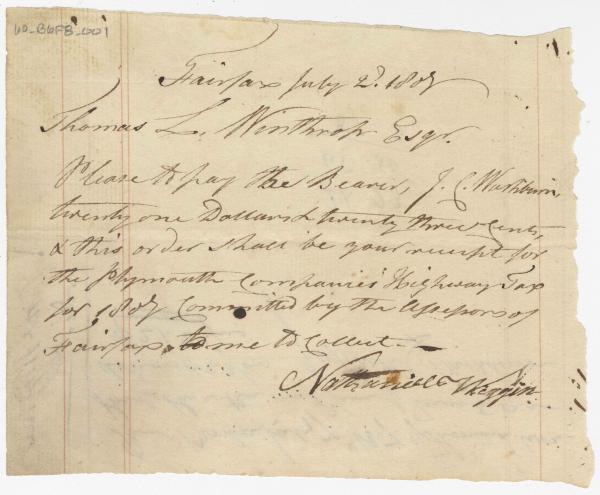 60_B6F8_001
Fairfax July 2d. 1807
Thomas L. Winthrop Esqr.
Please to pay the Bearer, J. C. Washburn,
twenty one Dollars & twenty three Cents,
& this order shall be your receipt for
the Plymouth Companies Highway Tax
for 1807 Committed by the Assessors of
Fairfax to me to Collect.
Nathaniel